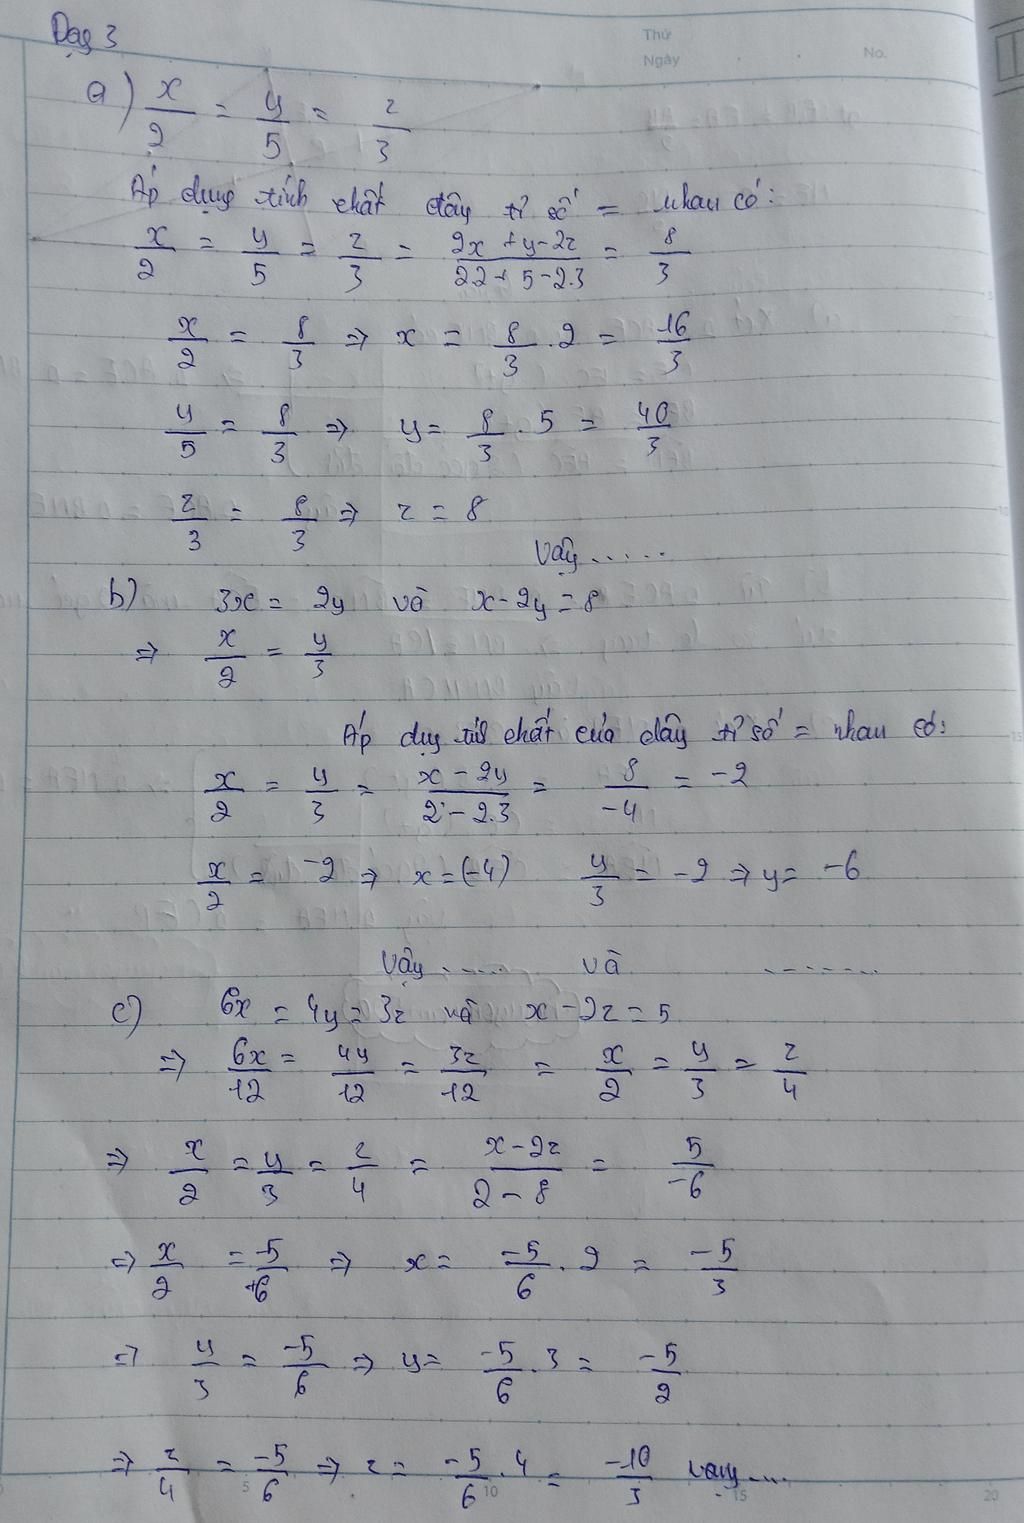 Dạg 3
Thứ
Ngày
No.
a) x/2 = y/5 = z/3
Áp dụng tính chất dãy tỉ số = nhau có:
x/2 = y/5 = z/3 = (2x + y - 2z)/(2.2 + 5 - 2.3) = 8/3
x/2 = 8/3 => x = 8/3 . 2 = 16/3
y/5 = 8/3 => y = 8/3 . 5 = 40/3
z/3 = 8/3 => z = 8
Vậy ......
b) 3x = 2y và x - 2y = 8
=> x/2 = y/3
Áp dụg tính chất của dãy tỉ số = nhau có:
x/2 = y/3 = (x - 2y)/(2 - 2.3) = 8/-4 = -2
x/2 = -2 => x = (-4) y/3 = -2 => y = -6
Vậy ...... và .......
c) 6x = 4y = 3z và x - 2z = 5
=> 6x/12 = 4y/12 = 3z/12 = x/2 = y/3 = z/4
=> x/2 = y/3 = z/4 = (x - 2z)/(2 - 8) = 5/-6
=> x/2 = -5/6 => x = -5/6 . 2 = -5/3
=> y/3 = -5/6 => y = -5/6 . 3 = -5/2
=> z/4 = -5/6 => z = -5/6 . 4 = -10/3 Vậy ....
5 10 15 20